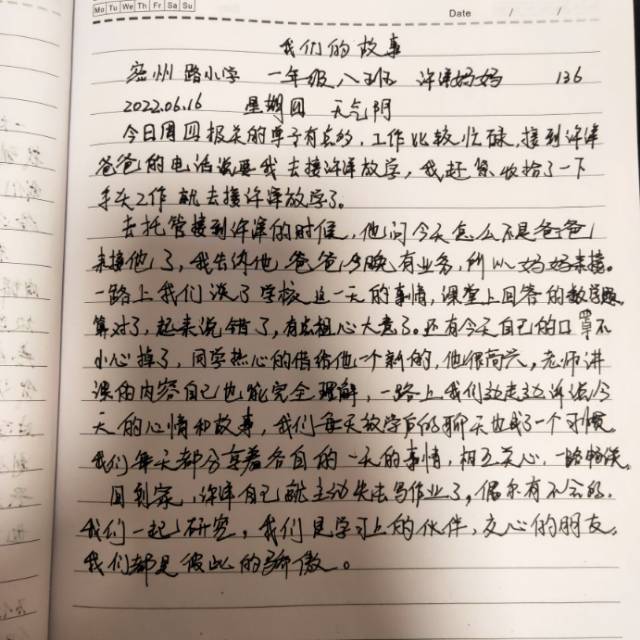 Mo Tu We Th Fr Sa Su
Date / /
我们的故事
密州路小学 一年级八班 许津妈妈 136
2022.06.16 星期四 天气阴
今日周四报关的单子有点多,工作比较忙碌,接到许津
爸爸的电话说要我去接许津放学,我赶紧收拾了一下
手头工作就去接许津放学了。
去托管接到许津的时候,他问今天怎么不是爸爸
来接他了,我告诉他爸爸今晚有业务,所以妈妈来接。
一路上我们谈了学校这一天的事情,课堂上回答的数学题
算对了,起来说错了,有点粗心大意了。还有今天自己的口罩不
小心掉了,同学热心的借给他一个新的,他很高兴,老师讲
课的内容自己也能完全理解,一路上我们边走边诉说今
天的心情和故事,我们每天放学后的聊天也成了一个习惯
我们每天都分享着各自的一天的事情,相互关心,一路畅谈。
回到家,许津自己就主动先去写作业了,偶尔有不会的,
我们一起研究,我们是学习上的伙伴,交心的朋友,
我们都是彼此的骄傲。